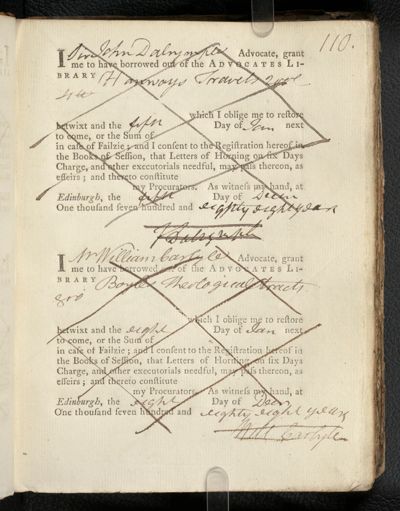 110.
I Sir John Dalrymple Advocate, grant
me to have borrowed out of the ADVOCATES LI-
BRARY Hanways Travels 2 vol
4to
which I oblige me to reſtore
betwixt and the fifth Day of Jan next
to come, or the Sum of
in caſe of Failzie; and I conſent to the Regiſtration hereof in
the Books of Seſſion, that Letters of Horning on ſix Days
Charge, and other executorials needful, may paſs thereon, as
effeirs; and thereto conſtitute
my Procurators. As witneſs my hand, at
Edinburgh, the fifth Day of Decer
One thouſand ſeven hundred and eighty eight years
J Dalrymple
I Mr William Carlyle Advocate, grant
me to have borrowed out of the ADVOCATES LI-
BRARY Boyle Theological tracts
8vo
which I oblige me to reſtore
betwixt and the eight Day of Jan next
to come, or the Sum of
in caſe of Failzie; and I conſent to the Regiſtration hereof in
the Books of Seſſion, that Letters of Horning on ſix Days
Charge, and other executorials needful, may paſs thereon, as
effeirs; and thereto conſtitute
my Procurators. As witneſs my hand, at
Edinburgh, the eight Day of Decer
One thouſand ſeven hundred and eighty eight years
Will Carlyle